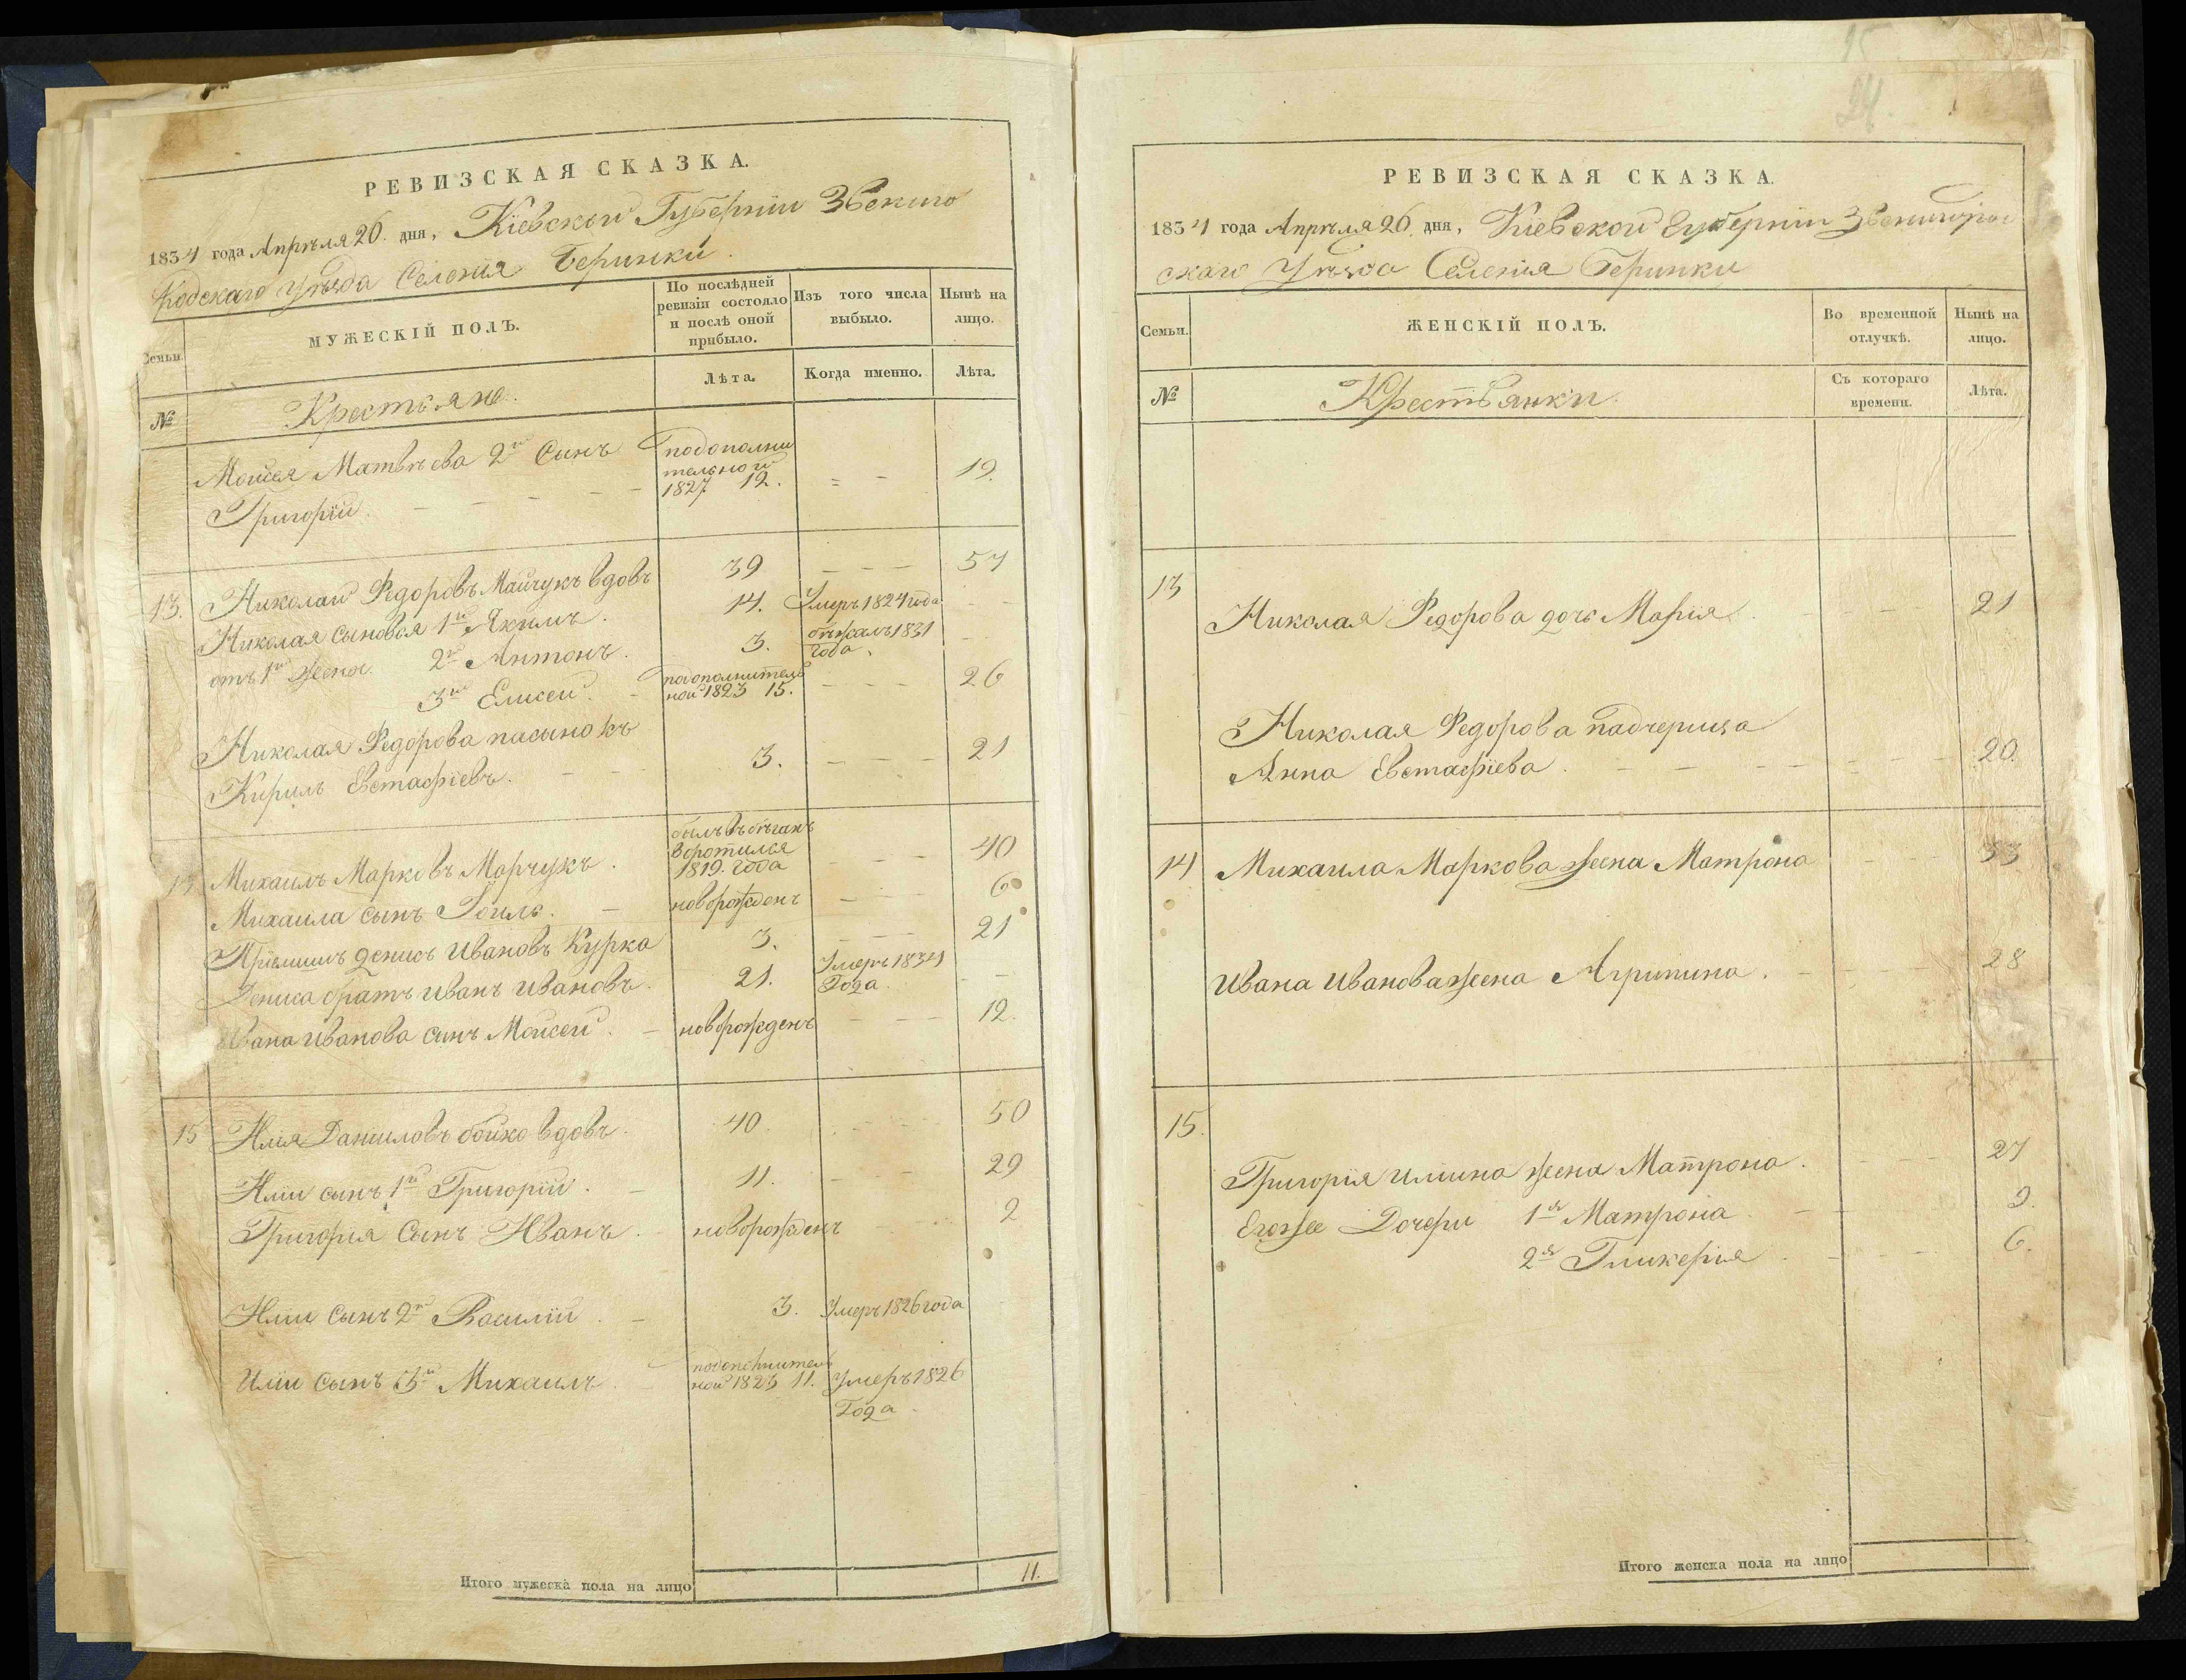 РЕВИЗСКАЯ СКАЗКА.
1834 года Апрѣля 26. дня, Кіевской Губерніи Звениго
родскаго уѣзда Селенія Беринки.
Семьи.
МУЖЕСКІЙ ПОЛЪ.
По послѣдней
ревизіи состояло
и послѣ оной
прибыло.
Изъ того числа
выбыло.
Нынѣ на
лицо.
№
Крестьяне.
Лѣта.
Когда именно.
Лѣта.
Моисея Матвѣева 2й Сынъ
Григорій.
подополни
тельной
1827 12.
19.
13. Николай Федоровъ Майчукъ вдовъ 39 57
Николая сыновья 1й Якимъ. 14. Умеръ 1824 года
отъ 1й жены. 2й Антонъ. 3. бѣжалъ 1831
года.
3й Елисей. подополнитель
ной 1823 15. 26
Николая Федорова пасынокъ
Кирилъ Евстафіевъ. 3. 21
былъ въ бѣгахъ
воротился
1819. года
Михаилъ Марковъ Марчукъ. 40
Михаила сынъ новорожденъ 6
Пріемышъ Денисъ Ивановъ Курка 3. 21
Дениса братъ Иванъ Ивановъ. 21. Умеръ 1834
Года.
Ивана Иванова сынъ Моисей. новорожденъ 12.
15 Илія Даниловъ бойко вдовъ. 40. 50
Иліи сынъ 1й Григорій. 11. 29
Григорія Сынъ Иванъ. новорожденъ 2
Иліи сынъ 2й Василій 3. Умеръ 1826 года
Иліи сынъ 3й Михаилъ. подополнитель
ной 1823 11. Умеръ 1826
Года.
Итого мужеска пола на лицо 11.
24.
РЕВИЗСКАЯ СКАЗКА.
1834 года Апрѣля 26. дня, Кіевской Губерніи Звенигород
скаго Уѣзда Селенія Беринки
Семьи.
ЖЕНСКІЙ ПОЛЪ.
Во временной
отлучкѣ.
Нынѣ на
лицо.
№
Крестьянки.
Съ котораго
времени.
Лѣта.
13
Николая Федорова дочь Марія. 21
Николая Федорова падчерица
Анна Евстафіева. 20.
14 Михаила Маркова жена Матрона 33
Ивана Иванова жена Агрипина. 28
15.
Григорія Илиина жена Матрона. 27
Егоже Дочери 1я Матрона 9.
2я Гликерія 6.
Итого женска пола на лицо